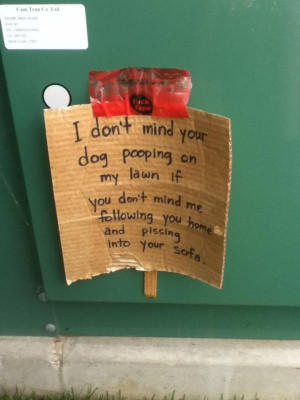 Cam Tran Co. Ltd.
I don't mind your
dog pooping on
my lawn if
you don't mind me
following you home
and pissing
into your sofa.